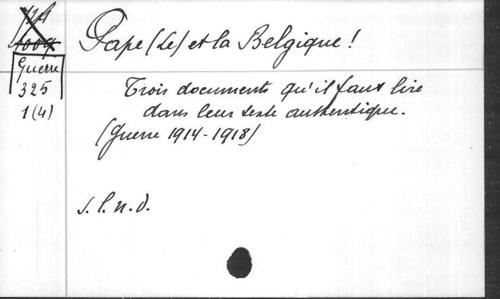 Pape (Le) et la Belgique !
Guerre
325
1(4)
Trois documents qu'il faut lire
dans leur texte authentique.
(Guerre 1914-1918)
s. l. n. d.